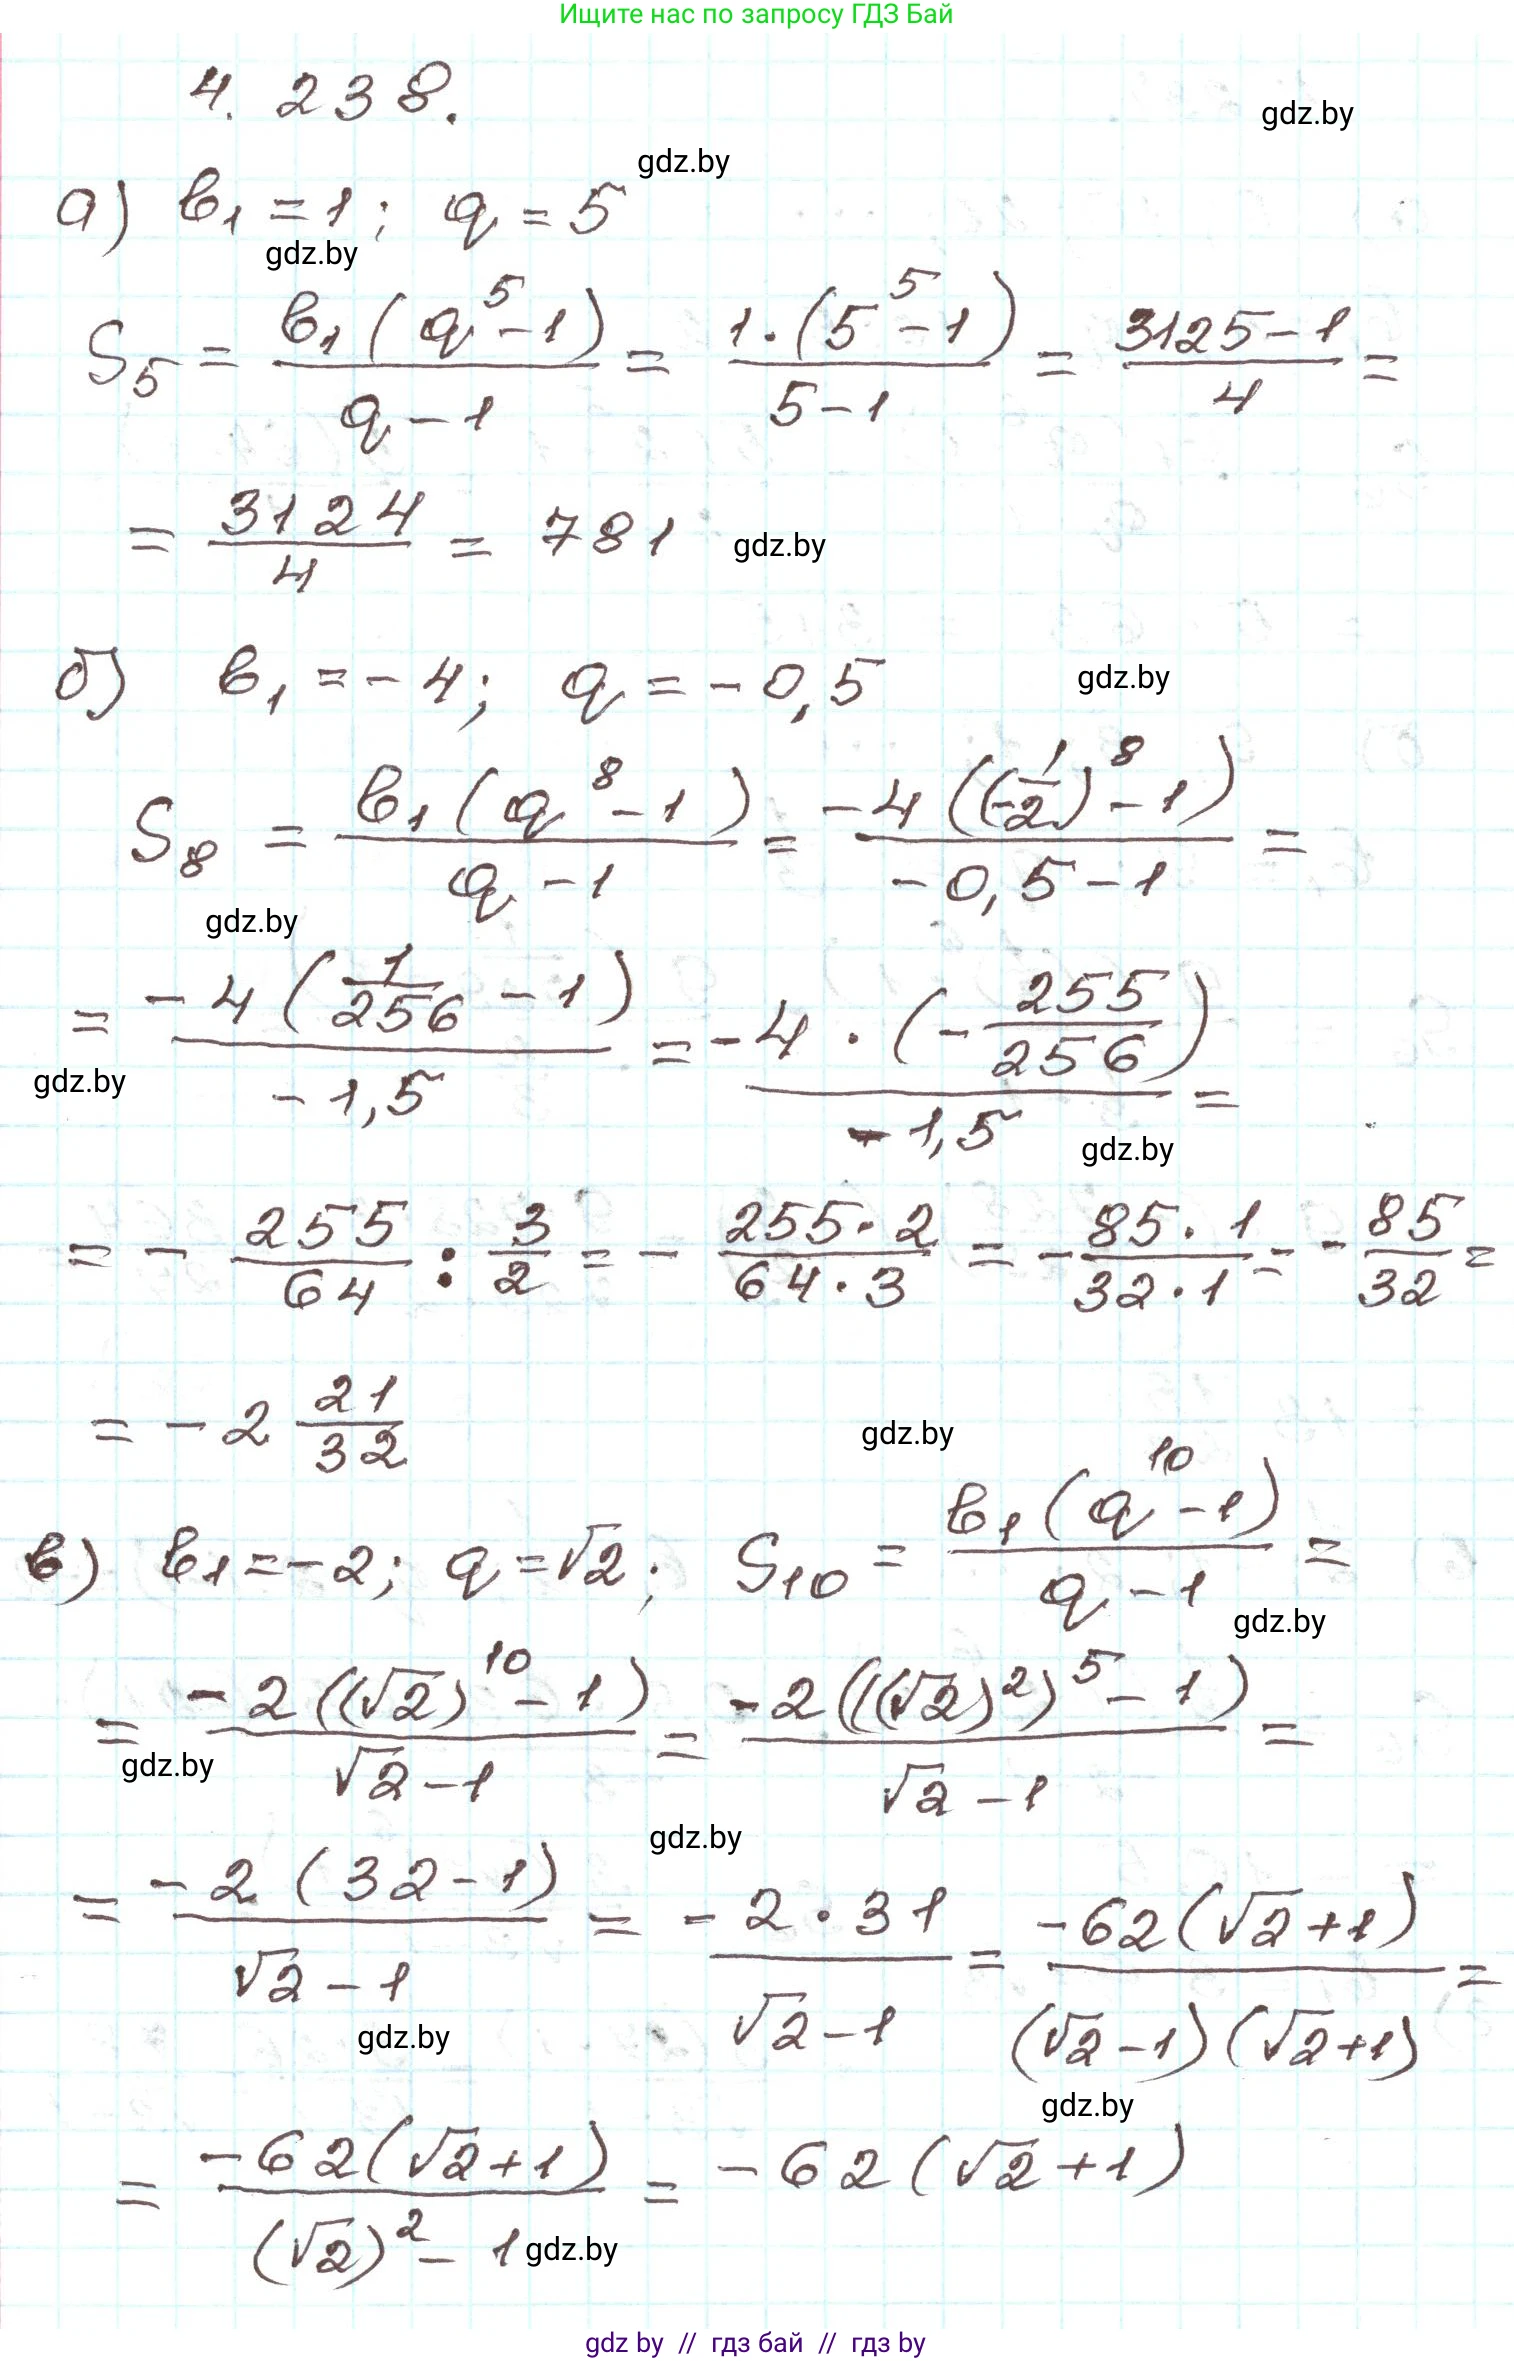 Ищите нас по запросу ГДЗ Бай
4. 238.
gdz.by
gdz.by
а) b₁ = 1; q = 5
gdz.by
S₅ = b₁(q⁵ - 1)/(q - 1) = 1·(5⁵ - 1)/(5 - 1) = (3125 - 1)/4 =
= 3124/4 = 781 gdz.by
б) b₁ = - 4; q = - 0,5 gdz.by
S₈ = b₁(q⁸ - 1)/(q - 1) = -4((-1/2)⁸ - 1)/(-0,5 - 1) =
gdz.by
= -4(1/256 - 1)/(-1,5) = -4·(-255/256)/(-1,5) =
gdz.by
gdz.by
= - 255/64 : 3/2 = - (255·2)/(64·3) = - (85·1)/(32·1) = - 85/32 =
= - 2 21/32
gdz.by
в) b₁ = -2; q = √2; S₁₀ = b₁(q¹⁰ - 1)/(q - 1) =
gdz.by
= -2((√2)¹⁰ - 1)/(√2 - 1) = -2(((√2)²)⁵ - 1)/(√2 - 1) =
gdz.by
gdz.by
= -2(32 - 1)/(√2 - 1) = -2·31/(√2 - 1) = -62(√2 + 1)/((√2 - 1)(√2 + 1)) =
gdz.by
gdz.by
= -62(√2 + 1)/((√2)² - 1) = -62(√2 + 1)
gdz.by
gdz by // гдз бай // гдз by